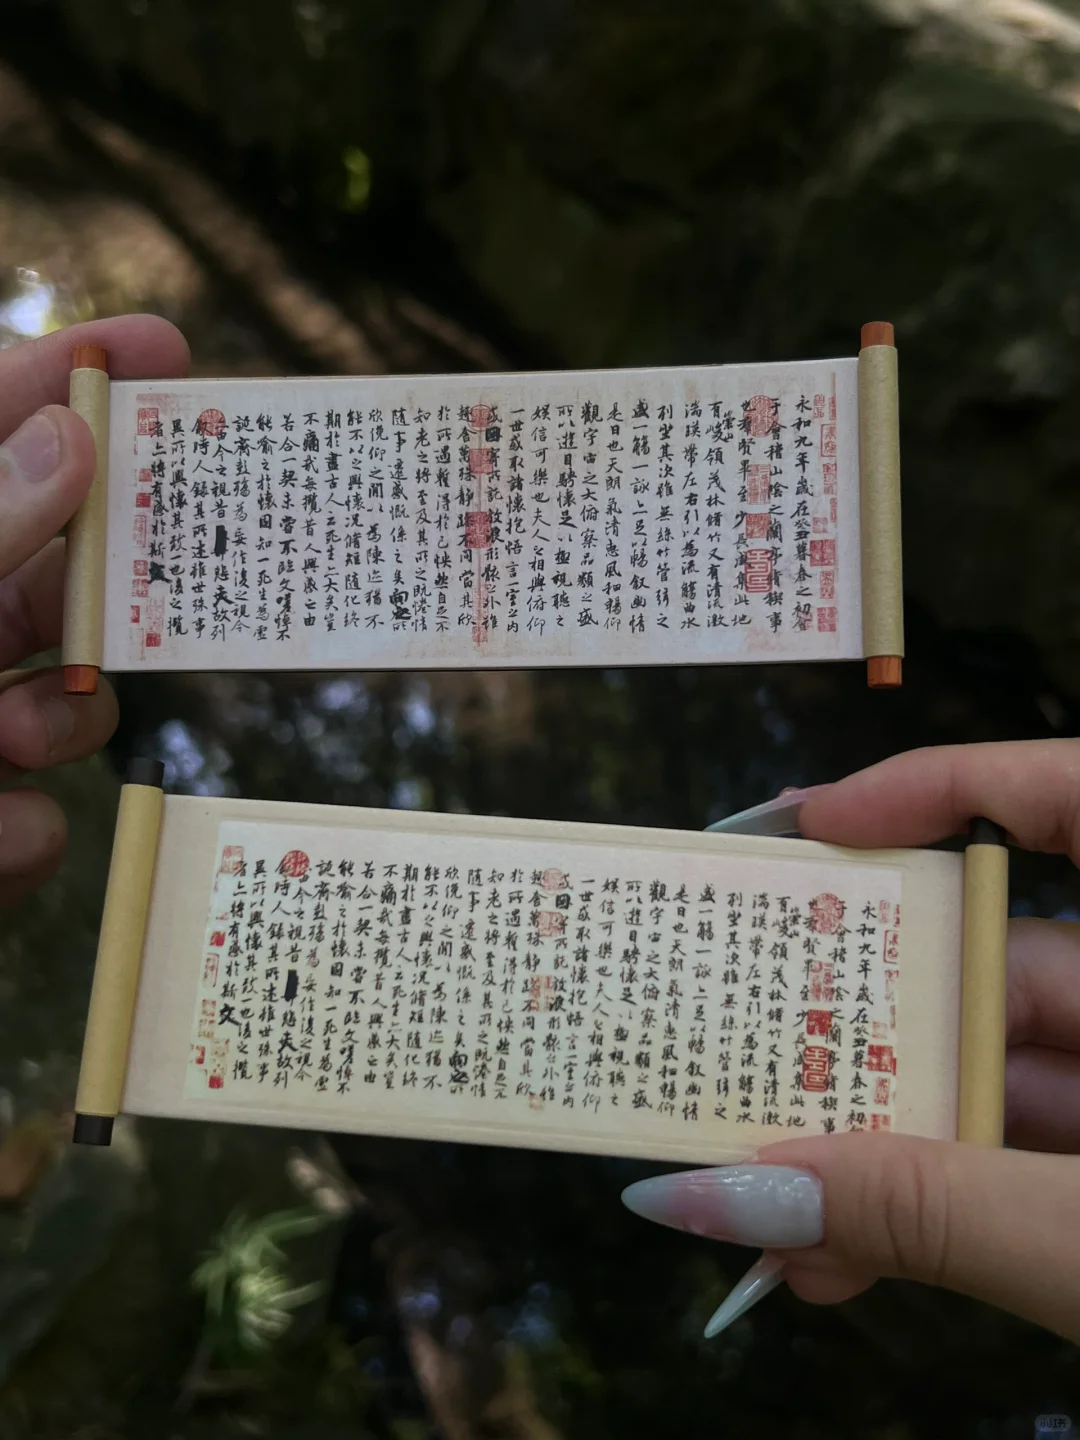 永和九年歲在癸丑暮春之初會
于會稽山陰之蘭亭脩稧事
也羣賢畢至少長咸集此地
有崇山峻領茂林脩竹又有清流激
湍暎帶左右引以為流觴曲水
列坐其次雖無絲竹管弦之
盛一觴一詠亦足以暢敘幽情
是日也天朗氣清惠風和暢仰
觀宇宙之大俯察品類之盛
所以遊目騁懷足以極視聽之
娛信可樂也夫人之相與俯仰
一世或取諸懷抱悟言一室之內
或因寄所託放浪形骸之外雖
趣舍萬殊靜躁不同當其欣
於所遇暫得於己快然自足不
知老之將至及其所之既惓情
隨事遷感慨係之矣向之所
欣俛仰之閒以為陳迹猶不
能不以之興懷況脩短隨化終
期於盡古人云死生亦大矣豈
不痛哉每攬昔人興感之由
若合一契未嘗不臨文嗟悼不
能喻之於懷固知一死生為虛
誕齊彭殤為妄作後之視今
亦由今之視昔悲夫故列
敘時人錄其所述雖世殊事
異所以興懷其致一也後之攬
者亦將有感於斯文
永和九年歲在癸丑暮春之初會
于會稽山陰之蘭亭脩稧事
也羣賢畢至少長咸集此地
有崇山峻領茂林脩竹又有清流激
湍暎帶左右引以為流觴曲水
列坐其次雖無絲竹管弦之
盛一觴一詠亦足以暢敘幽情
是日也天朗氣清惠風和暢仰
觀宇宙之大俯察品類之盛
所以遊目騁懷足以極視聽之
娛信可樂也夫人之相與俯仰
一世或取諸懷抱悟言一室之內
或因寄所託放浪形骸之外雖
趣舍萬殊靜躁不同當其欣
於所遇暫得於己快然自足不
知老之將至及其所之既惓情
隨事遷感慨係之矣向之所
欣俛仰之閒以為陳迹猶不
能不以之興懷況脩短隨化終
期於盡古人云死生亦大矣豈
不痛哉每攬昔人興感之由
若合一契未嘗不臨文嗟悼不
能喻之於懷固知一死生為虛
誕齊彭殤為妄作後之視今
亦由今之視昔悲夫故列
敘時人錄其所述雖世殊事
異所以興懷其致一也後之攬
者亦將有感於斯文
小红书